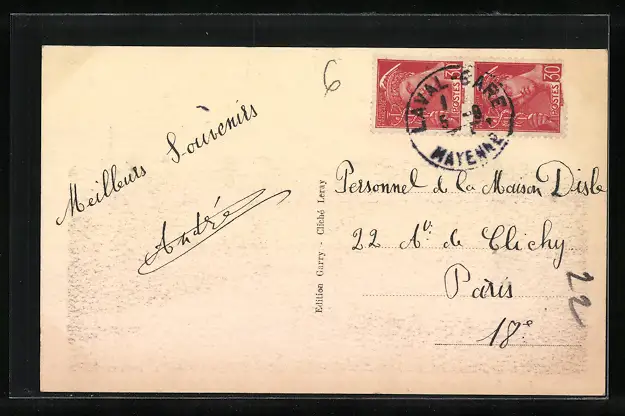 6
30 POSTES
30 POSTES
LAVAL-GARE
MAYENNE
Meilleurs Souvenirs
André
Edition Garry - Cliché Leray
Personnel de la Maison Disle
22 Av. de Clichy
Paris
18e
22